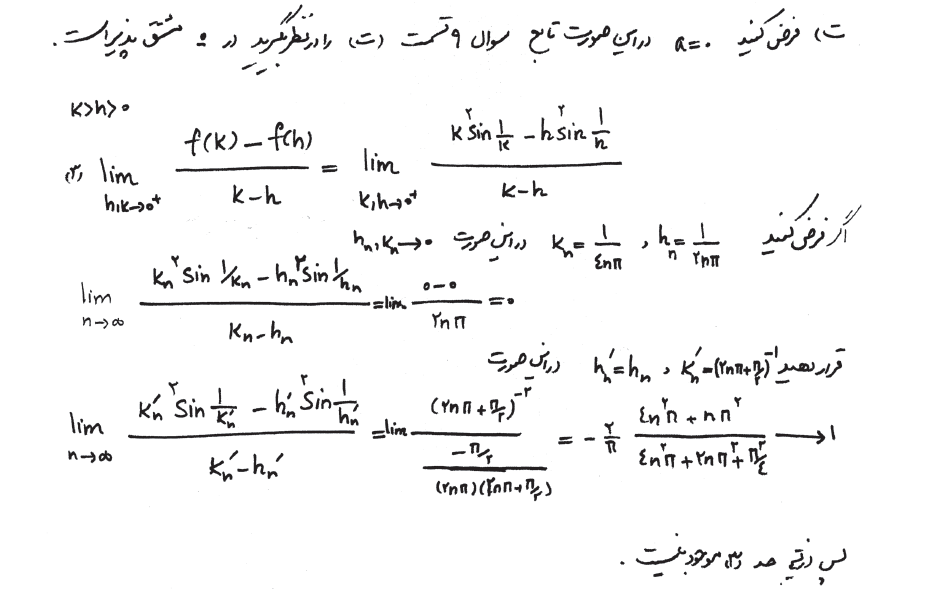 ت) فرض کنید a=۰ در این صورت تابع سوال ۹ قسمت (ت) را در نظر بگیرید در ۰ مشتق پذیر است.
k>h>۰
(۳) lim_{h,k→۰⁺} (f(k) - f(h))/(k-h) = lim_{k,h→۰⁺} (k² sin 1/k - h² sin 1/h)/(k-h)
اگر فرض کنید h_n = 1/۲nπ ، k_n = 1/۴nπ در این صورت h_n, k_n → ۰
lim_{n→∞} (k_n² sin 1/k_n - h_n² sin 1/h_n)/(k_n - h_n) = lim (۰-۰)/۲nπ = ۰
قرار دهید k′_n = (۲nπ + π/۲)⁻¹ ، h′_n = h_n در این صورت
lim_{n→∞} (k′_n² sin 1/k′_n - h′_n² sin 1/h′_n)/(k′_n - h′_n) = lim (۲nπ + π/۲)⁻² / ((-π/۲)/((۲nπ)(۲nπ + π/۲))) = -۲/π (۴n²π + nπ²)/(۴n²π + ۲nπ² + π²/۴) → ۱
پس حد (۳) موجود نیست.